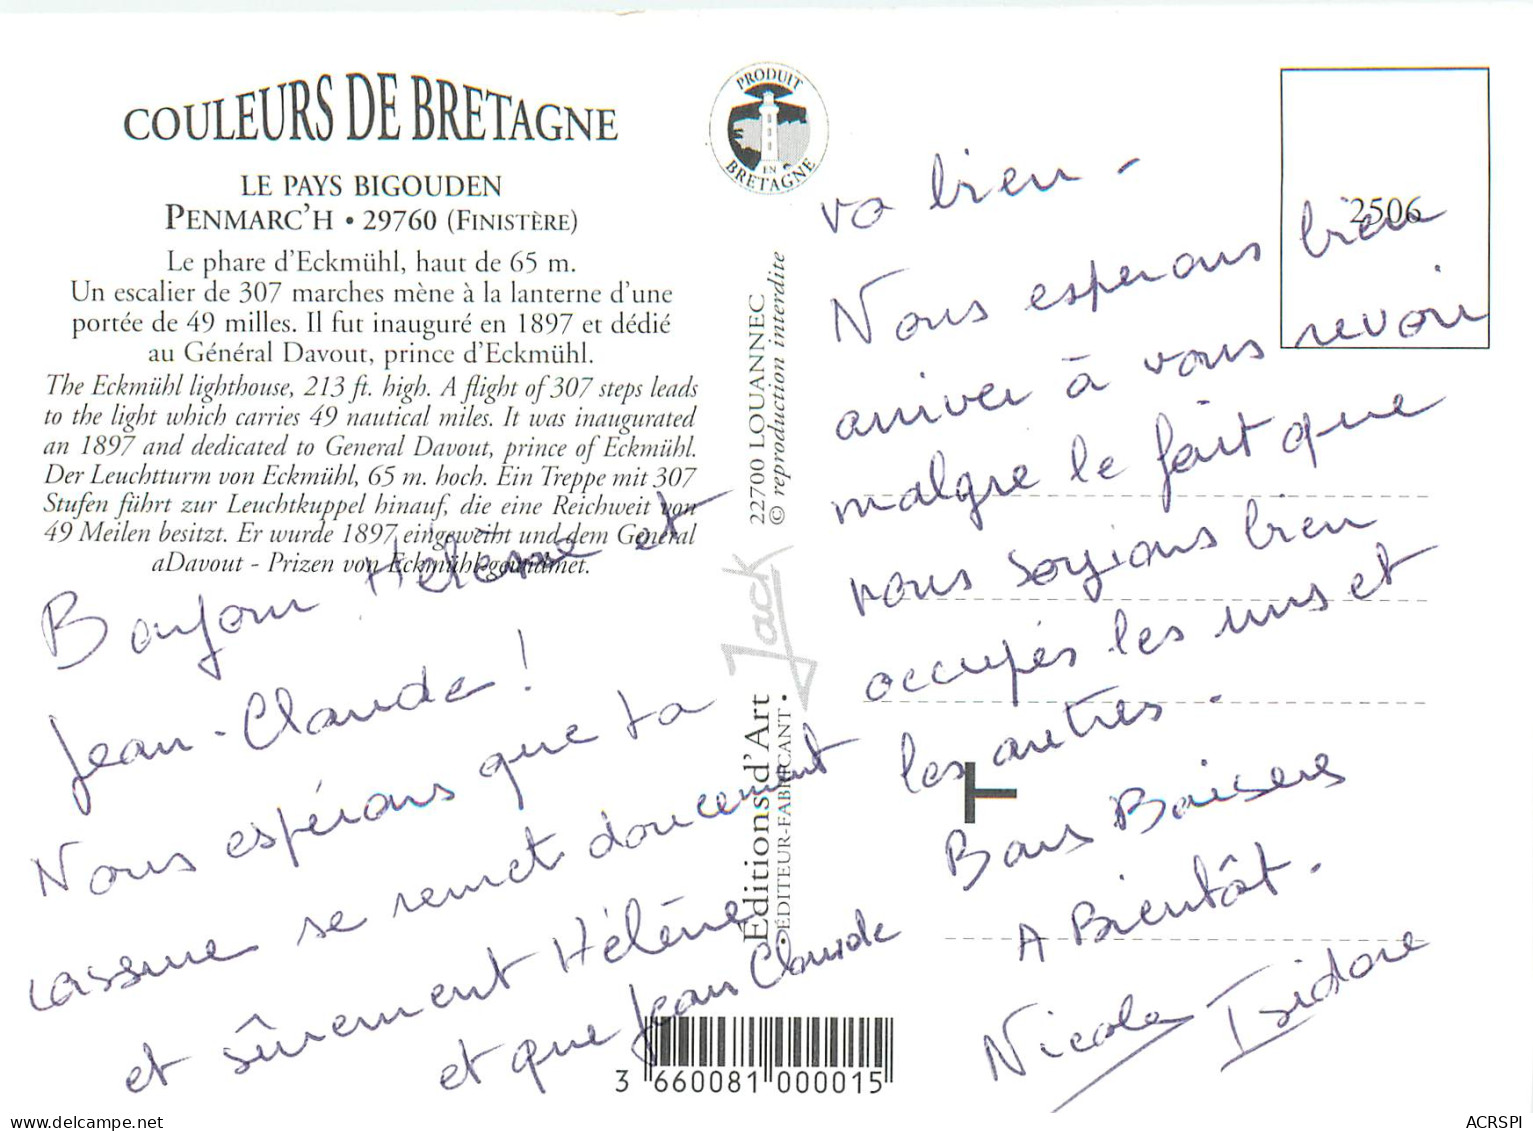 COULEURS DE BRETAGNE
LE PAYS BIGOUDEN
PENMARC'H • 29760 (FINISTÈRE)
Le phare d'Eckmühl, haut de 65 m.
Un escalier de 307 marches mène à la lanterne d'une
portée de 49 milles. Il fut inauguré en 1897 et dédié
au Général Davout, prince d'Eckmühl.
The Eckmühl lighthouse, 213 ft. high. A flight of 307 steps leads
to the light which carries 49 nautical miles. It was inaugurated
an 1897 and dedicated to General Davout, prince of Eckmühl.
Der Leuchtturm von Eckmühl, 65 m. hoch. Ein Treppe mit 307
Stufen führt zur Leuchtkuppel hinauf, die eine Reichweit von
49 Meilen besitzt. Er wurde 1897 eingeweiht und dem General
aDavout - Prizen von Eckmühl gewidmet.
Bonjour Hélène et
Jean-Claude !
Nous espérons que ta
se remet doucement
et sûrement Hélène
et que Jean Claude
PRODUIT
EN
BRETAGNE
22700 LOUANNEC
© reproduction interdite
Jack
Éditions d'Art
•ÉDITEUR-FABRICANT•
3 660081 000015
2506
va bien -
Nous esperons bien
arriver à vous revoir
malgre le fait que
nous soyions bien
occupés les uns et
les autres.
Bons Baisers
A Bientôt.
Nicole Isidore
ACRSPI